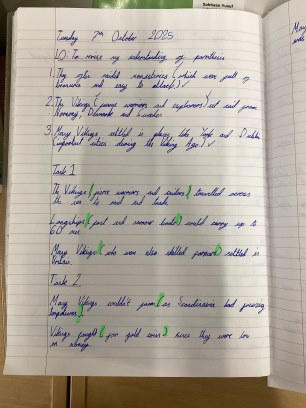 Tuesday 7th October 2025
LO: To review my understanding of parenthesis
1. They often raided monasteries (which were full of
treasure and easy to attack.) ✓
2. The Vikings (fierce warriors and explorers) set sail from
Norway, Denmark and Sweden.
3. Many Vikings settled in places like York and Dublin
(important cities during the Viking Age.) ✓
Task 1
The Vikings (fierce warriors and sailors) travelled across
the sea to raid and trade.
Longships (fast and narrow boats) could carry up to
60 men.
Many Vikings (who were also skilled farmers) settled in
Britain.
Task 2
Many Vikings couldn't farm (as Scandinavia had freezing
temperatures)
Vikings fought (for gold coins) since they were low
on money